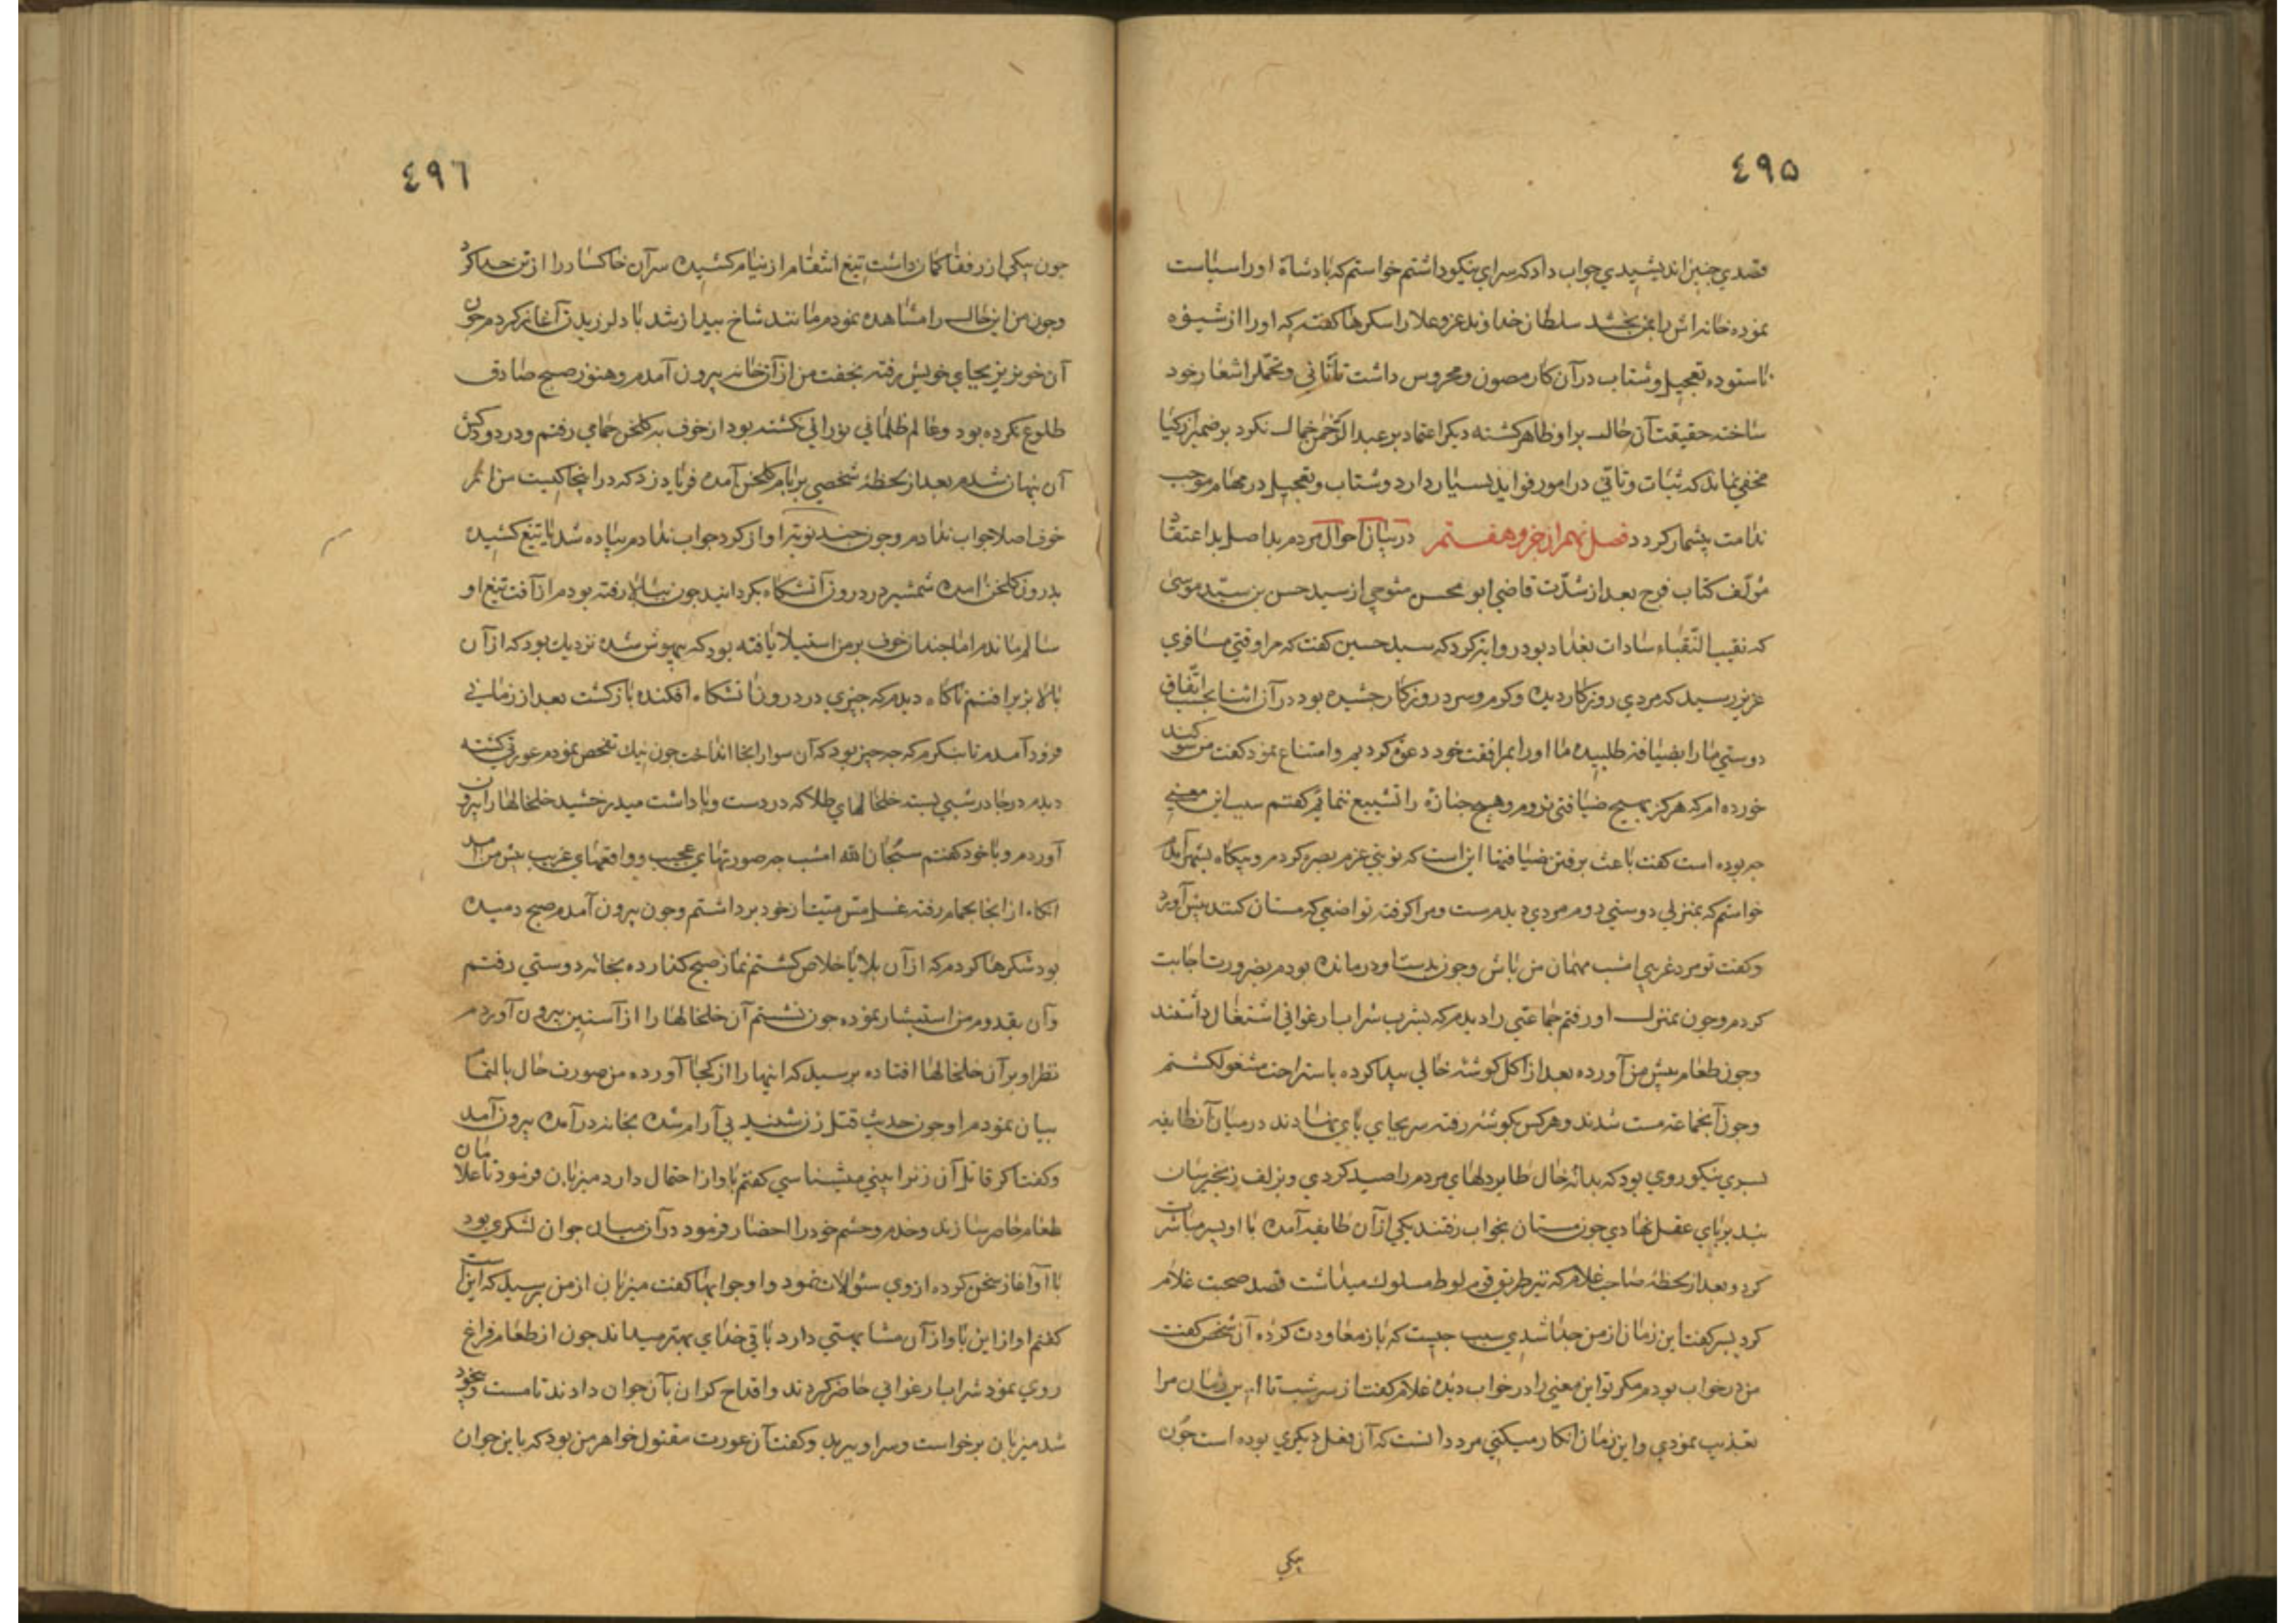 ٤٩٥
قصدی چنین اندیشیدی جواب داد که سرای نیکو داشتم خواستم که پادشاه او را سیاست
نموده خانه‌اش را بمن بخشد سلطان خداوند عز و علا را شکرها گفته که او را از شیوه
ناستوده تعجیل و شتاب در آن کار مصون و محروس داشت تا تأنی و تحمل را شعار خود
ساخته حقیقت آن حال بر او ظاهر گشته دیگر اعتماد بر عبدالرحمن جمال نکرد بر ضمیر ازکیا
مخفی نماند که ثبات و تأنی در امور فواید بسیار دارد و شتاب و تعجیل در مهام موجب
ندامت بیشمار گردد فصل نهم از جزو هفتم در بیان احوال مردم بد اصل بد اعتقاد
مؤلف کتاب فرج بعد از شدّت قاضی ابو محسن تنوخی از سید حسن بن سید موسی
که نقیب النقباء سادات بغداد بود روایت کرد که سید حسین گفت که مرا وقتی مسافری
عزیز رسید که مردی روزگار دیده و گرم و سرد روزگار چشیده بود در آن اثنا بحسب اتفاق
دوستی ما را بضیافت طلبیده ما او را بمرافقت خود دعوت کردیم و امتناع نمود گفت من سوگند
خورده‌ام که هرگز بهیچ ضیافتی نروم و هیچ جنازه را تشییع ننمایم گفتم سبب این معنی
چه بوده است گفت باعث برفتن ضیافتها این است که نوبتی عزم بصره کردم و بیگاه بشهر آمدم
خواستم که بمنزلی دوستی روم مردی دیدم مست و مرا گرفته تواضعی که مستان کنند پیش آورد
و گفت تو مرد غریبی امشب مهمان من باش و چون بدست او درمانده بودم بضرورت اجابت
کردم و چون بمنزل او رفتم جماعتی را دیدم که بشرب شراب ارغوانی اشتغال داشتند
و چون طعام پیش من آورده بعد از اکل گوشهٔ خالی پیدا کرده باستراحت مشغول گشتم
و چون آنجماعه مست شدند و هر کس بگوشهٔ رفته سر بجای پای نهادند در میان آنطایفه
پسری نیکو روی بود که بدانهٔ خال طایر دلهای مردم را صید کردی و بزلف زنجیرسان
بند بر پای عقل نهادی چون مستان بخواب رفتند یکی از آن طایفه آمده با او پسر مباشرت
کرد و بعد از لحظهٔ صاحب غلام که نیز طریق قوم لوط مسلوک میداشت قصد صحبت غلام
کرد پسر گفت این زمان از من جدا شدی سبب چیست که باز معاودت کرده آن شخص گفت
من در خواب بودم مگر تو این معنی را در خواب دیدهٔ غلام گفت از سر شب تا این زمان مرا
تعذیب نمودی و این زمان انکار میکنی مرد دانست که آن فعل دیگری بوده است چون
یکی
٤٩٦
چون بیکی از رفقا گمان داشت تیغ انتقام از نیام کشیده سر آن خاکسار را از تن جدا کرد
و چون من این حال را مشاهده نمودم مانند شاخ بید از شدباد لرزیدن آغاز کردم چون
آن خونریز بجای خویش رفته بخفت من از آن خانه بیرون آمدم و هنوز صبح صادق
طلوع نکرده بود و عالم ظلمانی نورانی نگشته بود از خوف به گلخن حمامی رفتم و در دودکش
آن پنهان شدم بعد از لحظهٔ شخصی بر بام گلخن آمده فریاد زد که در اینجا کیست من از
خوف اصلا جواب ندادم و چون چند نوبت آواز کرد جواب ندادم پیاده شد با تیغ کشیده
بدرون گلخن آمده شمشیر در درون آتشگاه بگردانید چون ببالا رفته بودم از آفت تیغ او
سالم ماندم اما چندان خوف بر من استیلا یافته بود که بیهوش شده نزدیک بود که از آن
بالا بزیر افتم ناگاه دیدم که چیزی در درون آتشگاه افکنده بازگشت بعد از زمانی
فرود آمدم تا بنگرم که چه چیز بود که آن سوار اینجا انداخت چون نیک تفحص نمودم عورتی کشته
دیدم در چادر شبی بسته خلخالهای طلا که در دست و پا داشت میدرخشید خلخالها را بیرون
آوردم و با خود گفتم سبحان الله امشب چه صورتهای عجیب و واقعهای غریب پیش من آمد
آنگاه از آنجا بحمام رفته غسل مس میت از خود برداشتم و چون بیرون آمدم صبح دمیده
بود شکرها کردم که از آن بلایا خلاص گشتم نماز صبح گذارده بخانهٔ دوستی رفتم
و آن بقدوم من استبشار نموده چون نشستم آن خلخالها را از آستین بیرون آوردم
نظر او بر آن خلخالها افتاده پرسید که اینها را از کجا آورده من صورت حال بالتمام
بیان نمودم او چون حدیث قتل زن شنید بی آرام شده بخانه درآمده بیرون آمد
و گفت اگر قاتل آن زن را بینی میشناسی گفتم بآواز احتمال دارد میزبان فرمود تا غلامان
طعام حاضر سازند و خدم و حشم خود را احضار فرمود در آن میان جوان لشکری بود
با او آغاز سخن کرده از وی سئوالات نمود و او جوابها گفت میزبان از من پرسید که این است
گفتم آواز این بآواز آن مشابهتی دارد باقی خدای بهتر میداند چون از طعام فراغ
روی نمود شراب ارغوانی حاضر کردند و اقداح گران بآن جوان دادند تا مست و بیخود
شد میزبان برخواست و سر او ببرید و گفت آن عورت مقتول خواهر من بود که با این جوان